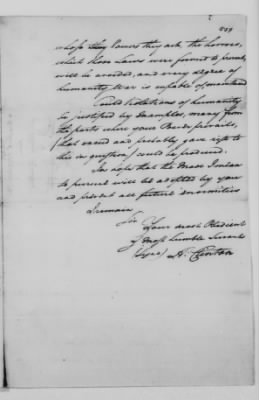 whose they Powers they ask, the horrors,
which those Laws were formed to prevent,
will be avoided, and every degree of
humanity War is capable of maintained
Could violations of humanity
be justified by Examples, many from
the parts where your Power prevails,
that exceed and probably gave rise to
this in question, could be produced.
In hope that the mode I mean
to pursue will be adopted by you
and prevent all future enormities
I remain
Sir
Your most Obedient
& most humble Servant
(Signed) H. Clinton